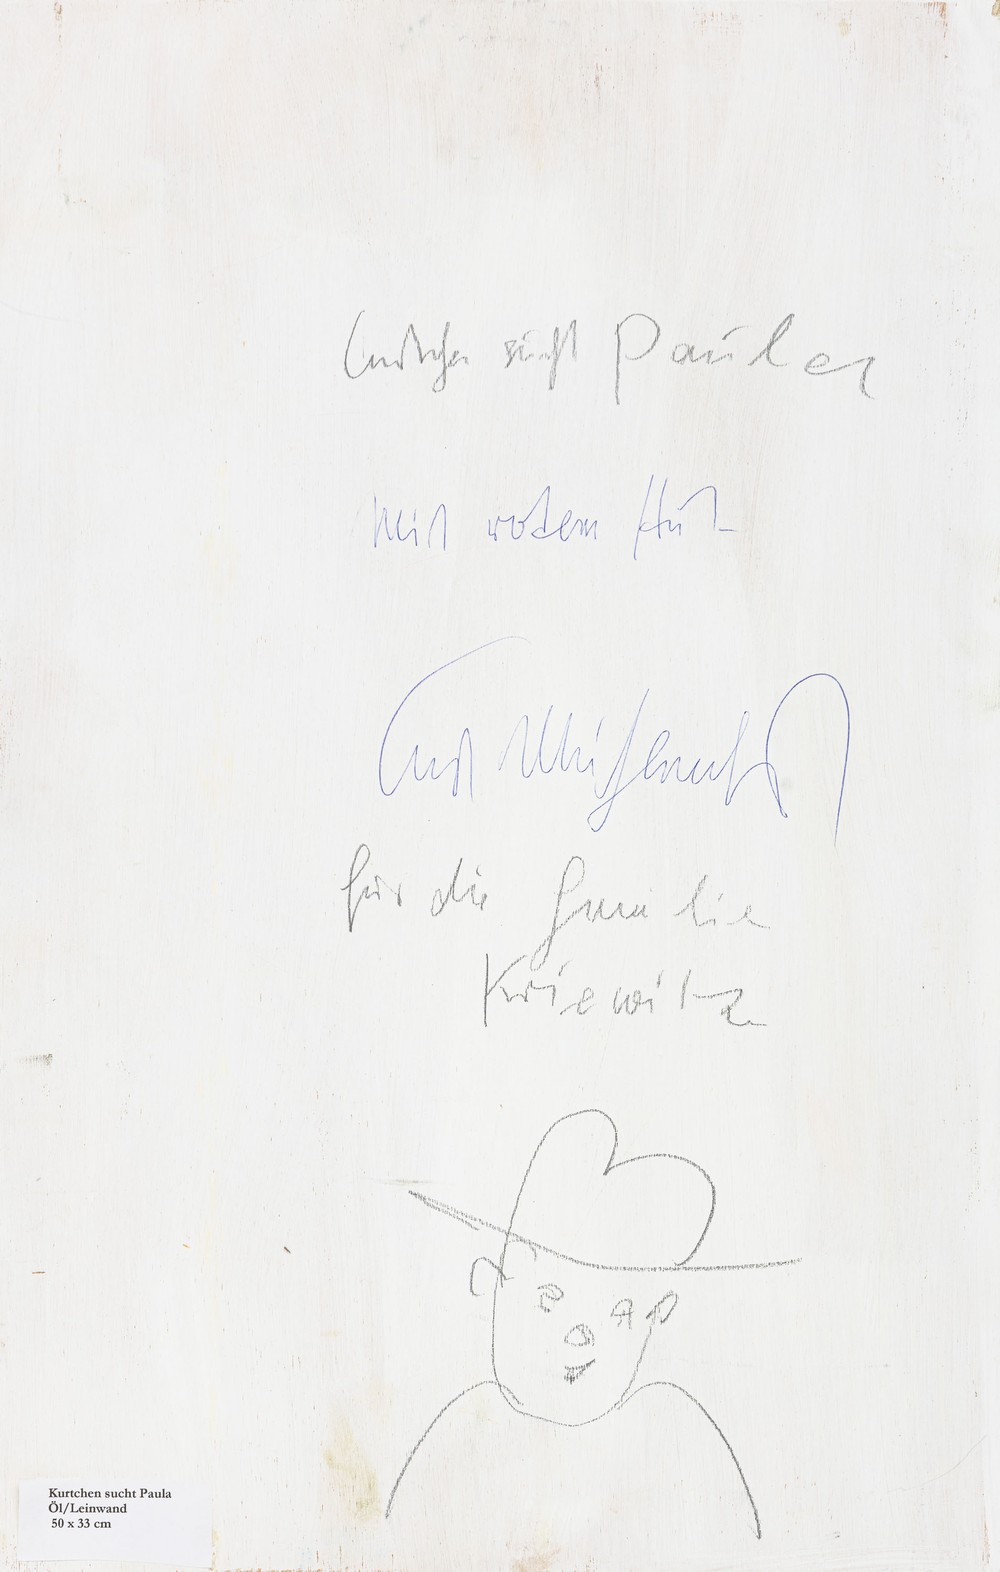 Curtchen sucht Paula
mit rotem Hut
Curt Mühlenhaupt
für die Familie
Kriewitz
Kurtchen sucht Paula
Öl/Leinwand
50 x 33 cm